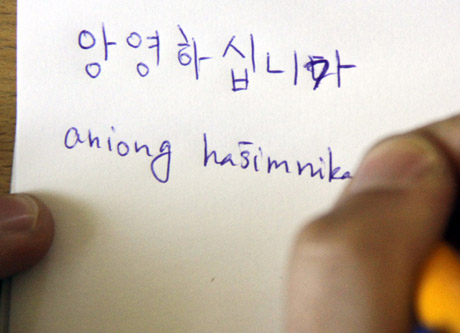 앙영하십니까
aniong hašimnika